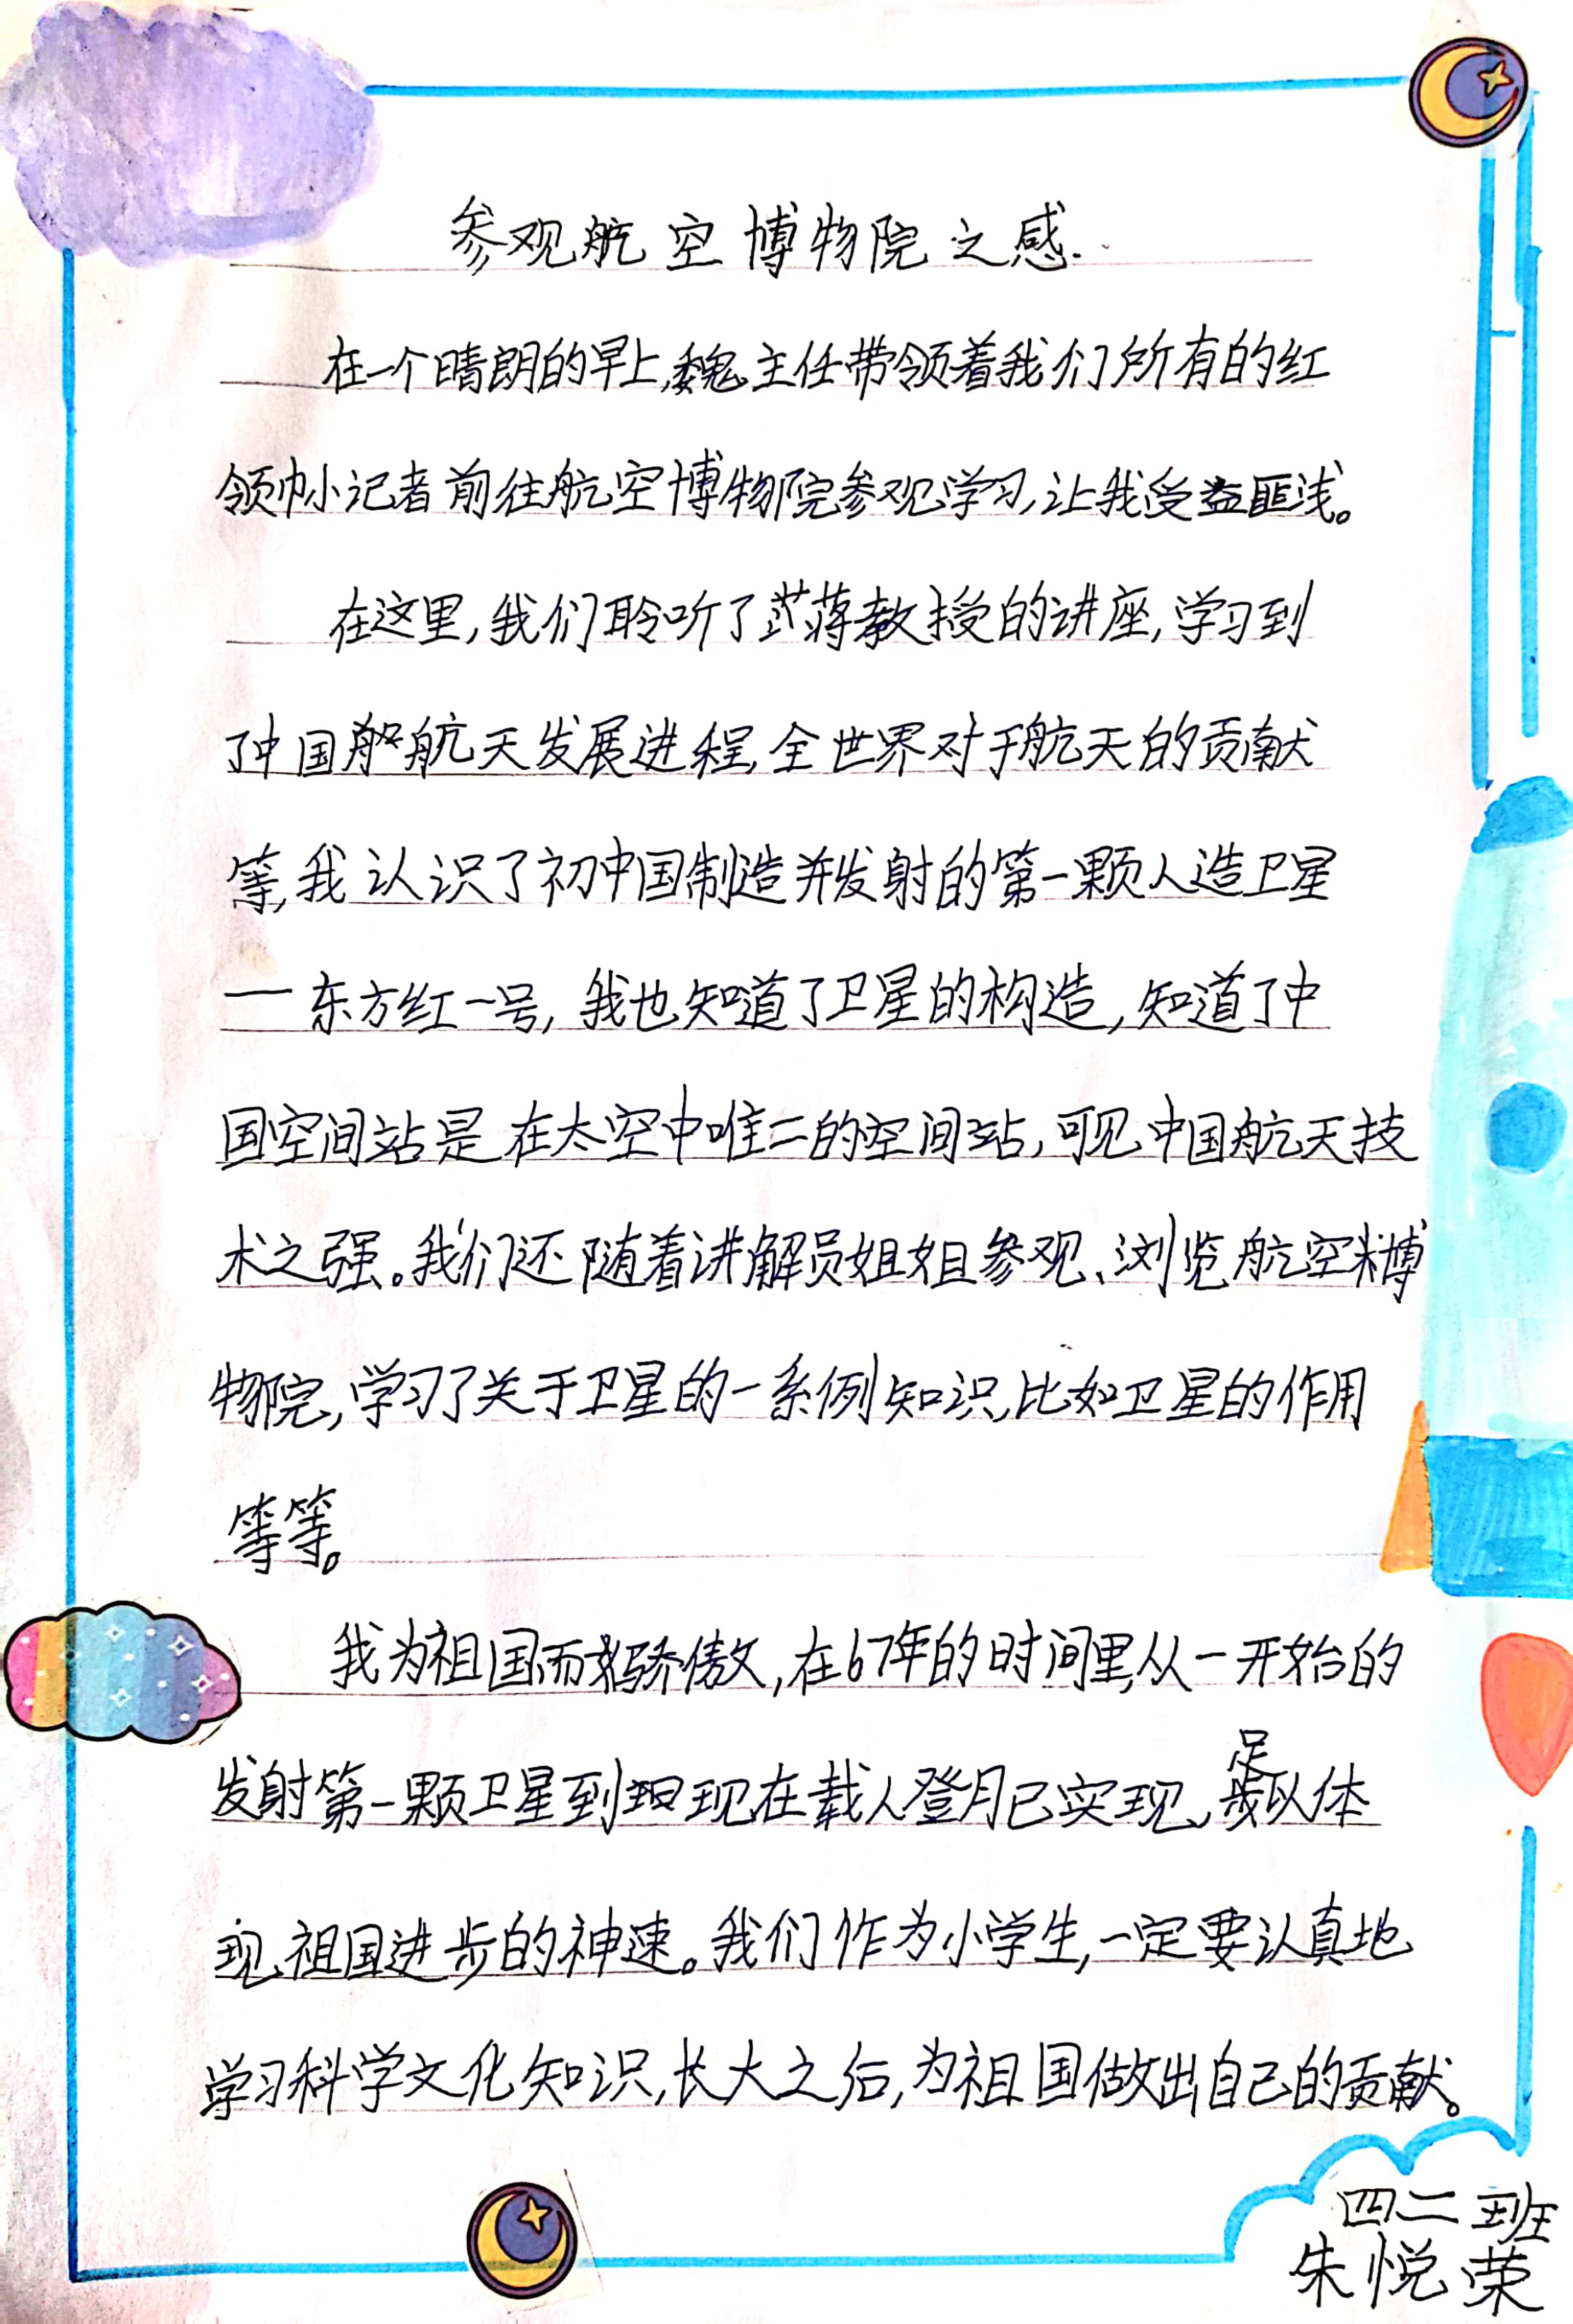 参观航空博物院之感.
在一个晴朗的早上,魏主任带领着我们所有的红
领巾小记者前往航空博物院参观学习,让我受益匪浅。
在这里,我们聆听了蒋教授的讲座,学习到
了中国航天发展进程,全世界对于航天的贡献
等,我认识了中国制造并发射的第一颗人造卫星
一东方红一号,我也知道了卫星的构造,知道了中
国空间站是在太空中唯二的空间站,可见中国航天技
术之强。我们还随着讲解员姐姐参观、浏览航空博
物院,学习了关于卫星的一系例知识,比如卫星的作用
等等。
我为祖国而骄傲,在67年的时间里,从一开始的
发射第一颗卫星到现在载人登月已实现,足以体
现祖国进步的神速。我们作为小学生,一定要认真地
学习科学文化知识,长大之后,为祖国做出自己的贡献。
四二班
朱悦荣